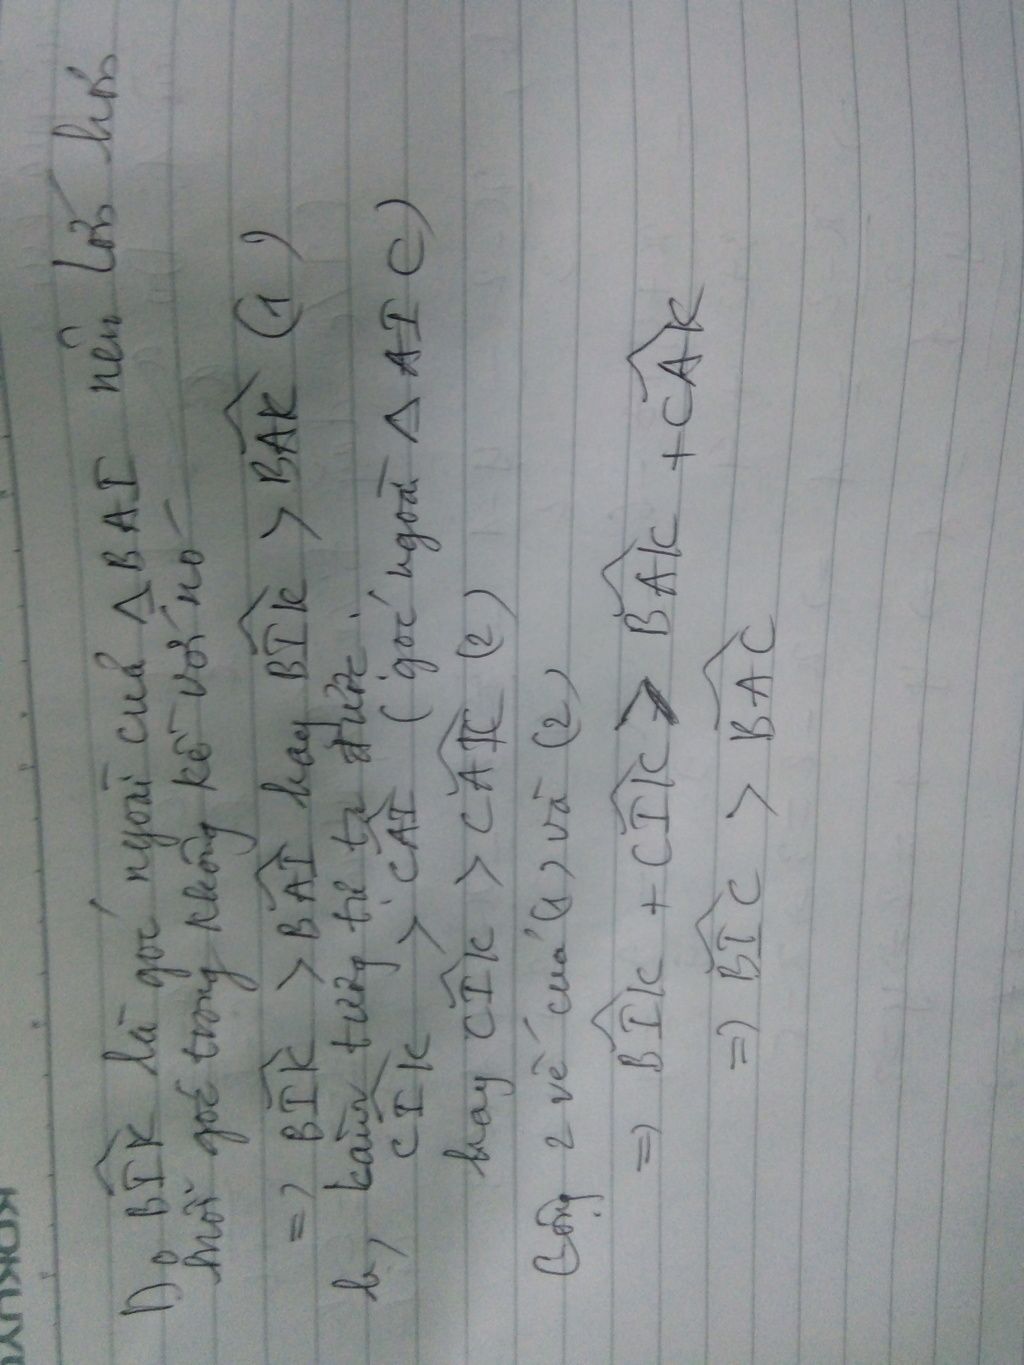 Do BIK là góc ngoài của Δ BAI nên lớn hơn
mỗi góc trong không kề với nó
=> BIK > BAI hay BIK > BAK (1)
b, tương tự ta được:
CIK > CAI (góc ngoài Δ AIC)
hay CIK > CAK (2)
Cộng 2 vế của (1) và (2)
=> BIK + CIK > BAK + CAK
=> BIC > BAC
KOKUYO